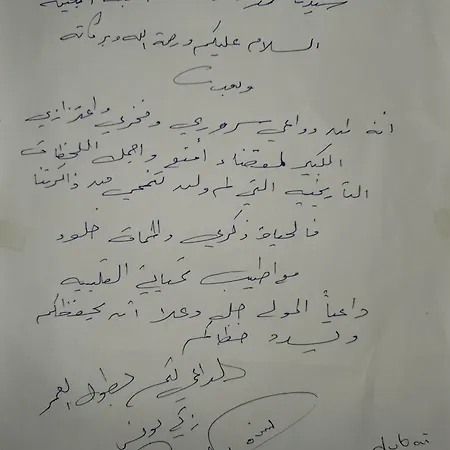 السلام عليكم ورحمة الله وبركاته
وبعد
انه لمن دواعي سروري وفخري واعتزازي
الكبير لمقضاء أمتع واجمل اللحظات
التاريخيه التي لم ولن تنمحي من ذاكرتنا
فالحياة ذكرى والممات خلود
مع اطيب تحياتي القلبيه
داعياً المولى جل وعلا أن يحفظكم
ويسدد خطاكم
الداعي لكم بطول العمر